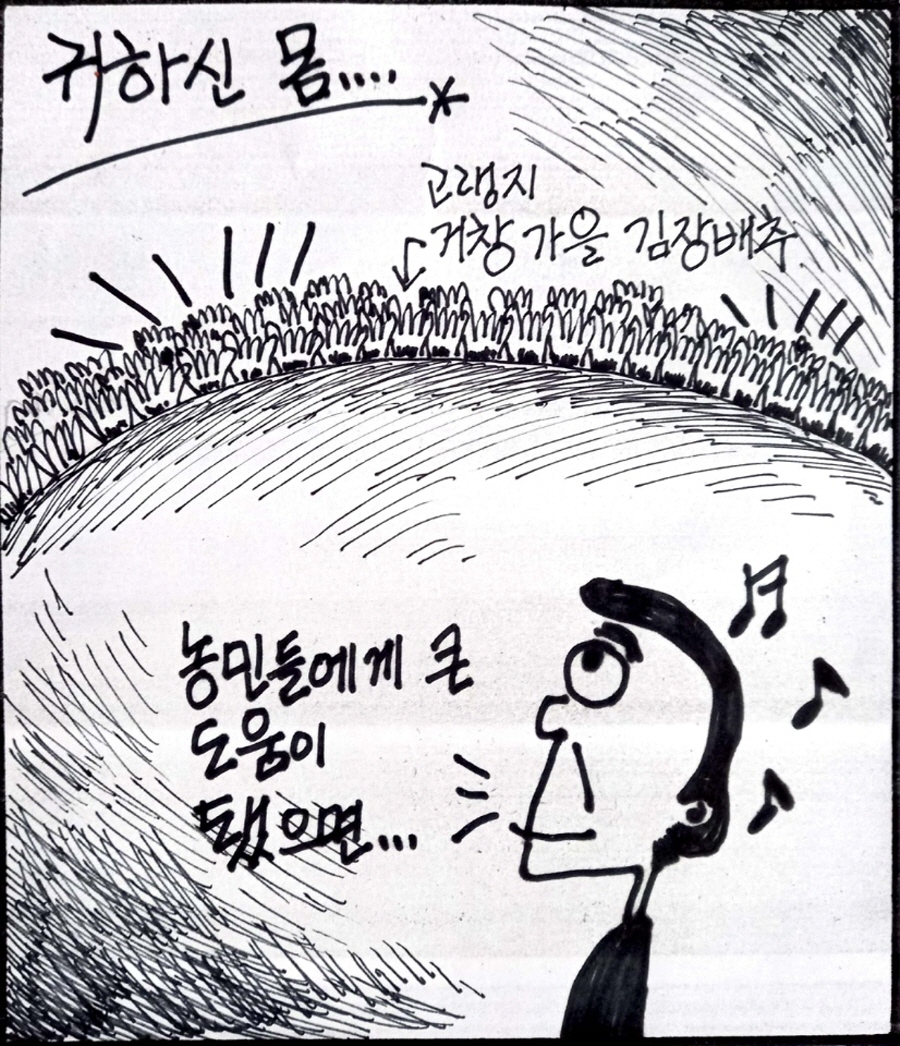 귀하신 몸....
고랭지
거창 가을 김장배추
농민들에게 큰
도움이
됐으면...